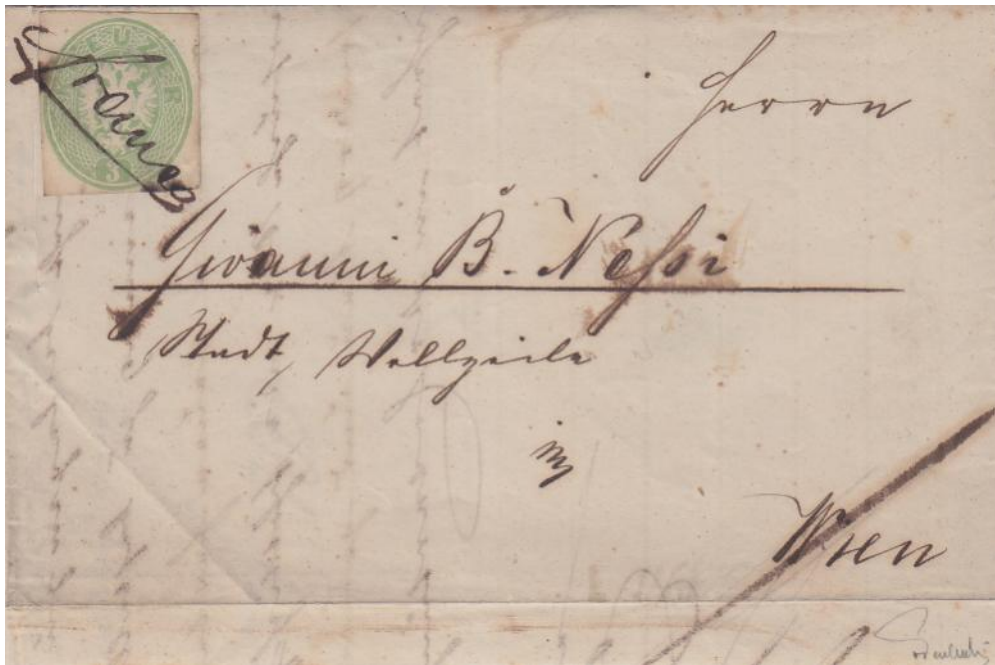 KREUZER
3
Franco
Herrn
Giovanni B. Nessi
Stadt, Wollzeile
in
Wien